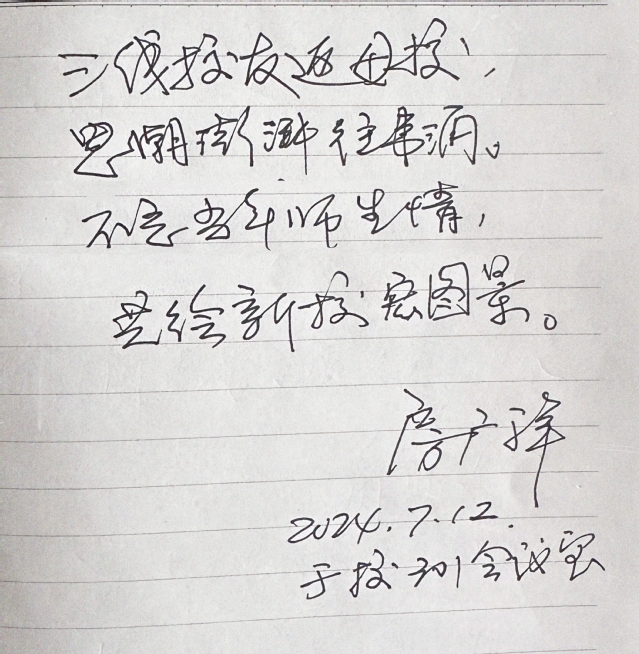 三线校友返母校，
思潮澎湃往事涌。
不忘当年师生情，
共绘新校宏图景。
房广祥
2024.7.12.
于校301会议室